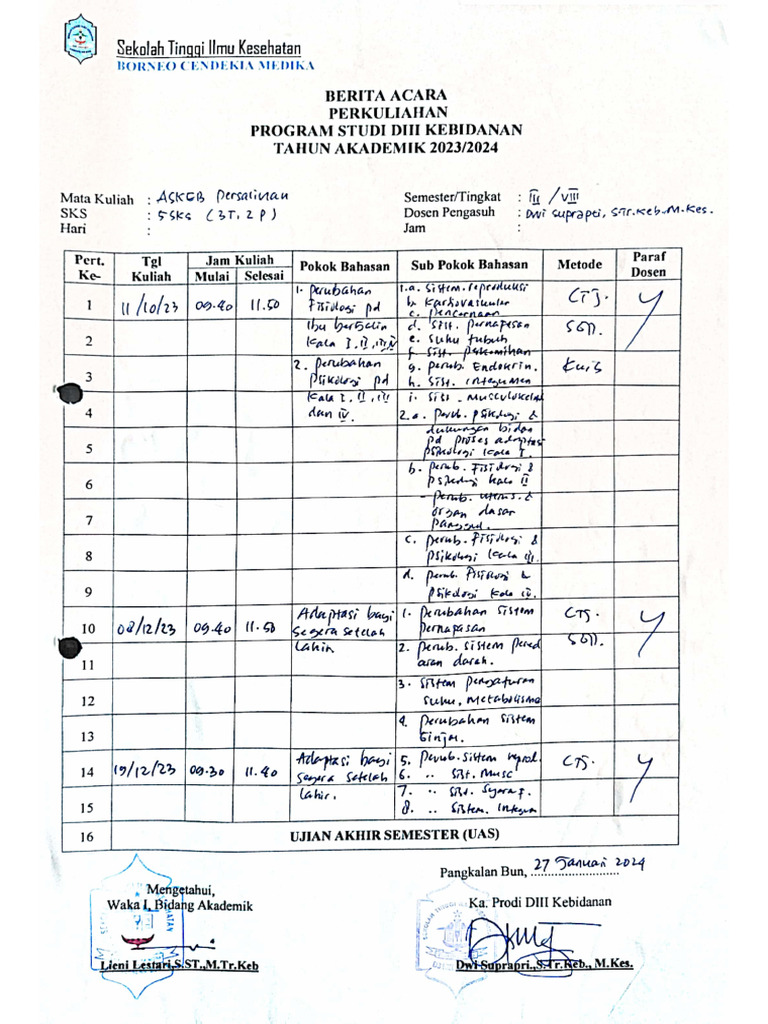 Sekolah Tinggi Ilmu Kesehatan
BORNEO CENDEKIA MEDIKA
BERITA ACARA
PERKULIAHAN
PROGRAM STUDI DIII KEBIDANAN
TAHUN AKADEMIK 2023/2024
Mata Kuliah : ASKEB Persalinan
Semester/Tingkat : III / VIII
SKS : 5 SKS (3T, 2P)
Dosen Pengasuh : Dwi Suprapri, STr.Keb.M.Kes.
Hari :
Jam :
Pert. Ke- Tgl Kuliah Jam Kuliah Mulai Selesai Pokok Bahasan Sub Pokok Bahasan Metode Paraf Dosen
1 11/10/23 09.40 11.50 1. Perubahan Fisiologi pd 1.a. Sistem.reproduksi CTJ.
b. Kardiovaskular
c. pencernaan
2 Ibu bersalin d. Sist. Pernapasan SGD.
Kala I, II, III, IV e. Suhu tubuh
f. Sist. Perkemihan
3 2. Perubahan g. Perub. Endokrin. Kuis
Psikologi pd h. Sist. Integumen
4 Kala I, II, III i. Sist. Musculoskelet
dan IV. 2.a. Perub. Psikologi &
dukungan bidan
5 pd proses adaptasi
psikologi Kala I.
6 b. Perub. Fisiologi &
Psikologi Kala II
7 - Perub. uterus &
organ dasar
panggul.
8 c. Perub. Fisiologi &
Psikologi Kala III.
9 d. Perub. Fisiologi &
Psikologi Kala IV.
10 08/12/23 09.40 11.50 Adaptasi bayi 1. Perubahan Sistem CTJ.
segera setelah Pernapasan
11 lahir 2. Perub. sistem pered SGD.
aran darah.
12 3. Sistem Pengaturan
Suhu, Metabolisme
13 4. Perubahan Sistem
Ginjal.
14 19/12/23 09.30 11.40 Adaptasi bayi 5. Perub. Sistem reprod. CTJ.
segera setelah 6. " Sist. Musc
15 lahir. 7. " Sist. Syaraf.
8. " Sistem. Integum
16 UJIAN AKHIR SEMESTER (UAS)
Pangkalan Bun, 27 Januari 2024
Mengetahui,
Waka I, Bidang Akademik
Ka. Prodi DIII Kebidanan
Lieni Lestari,S.ST.,M.Tr.Keb
Dwi Suprapri.,S.Tr.Keb., M.Kes.